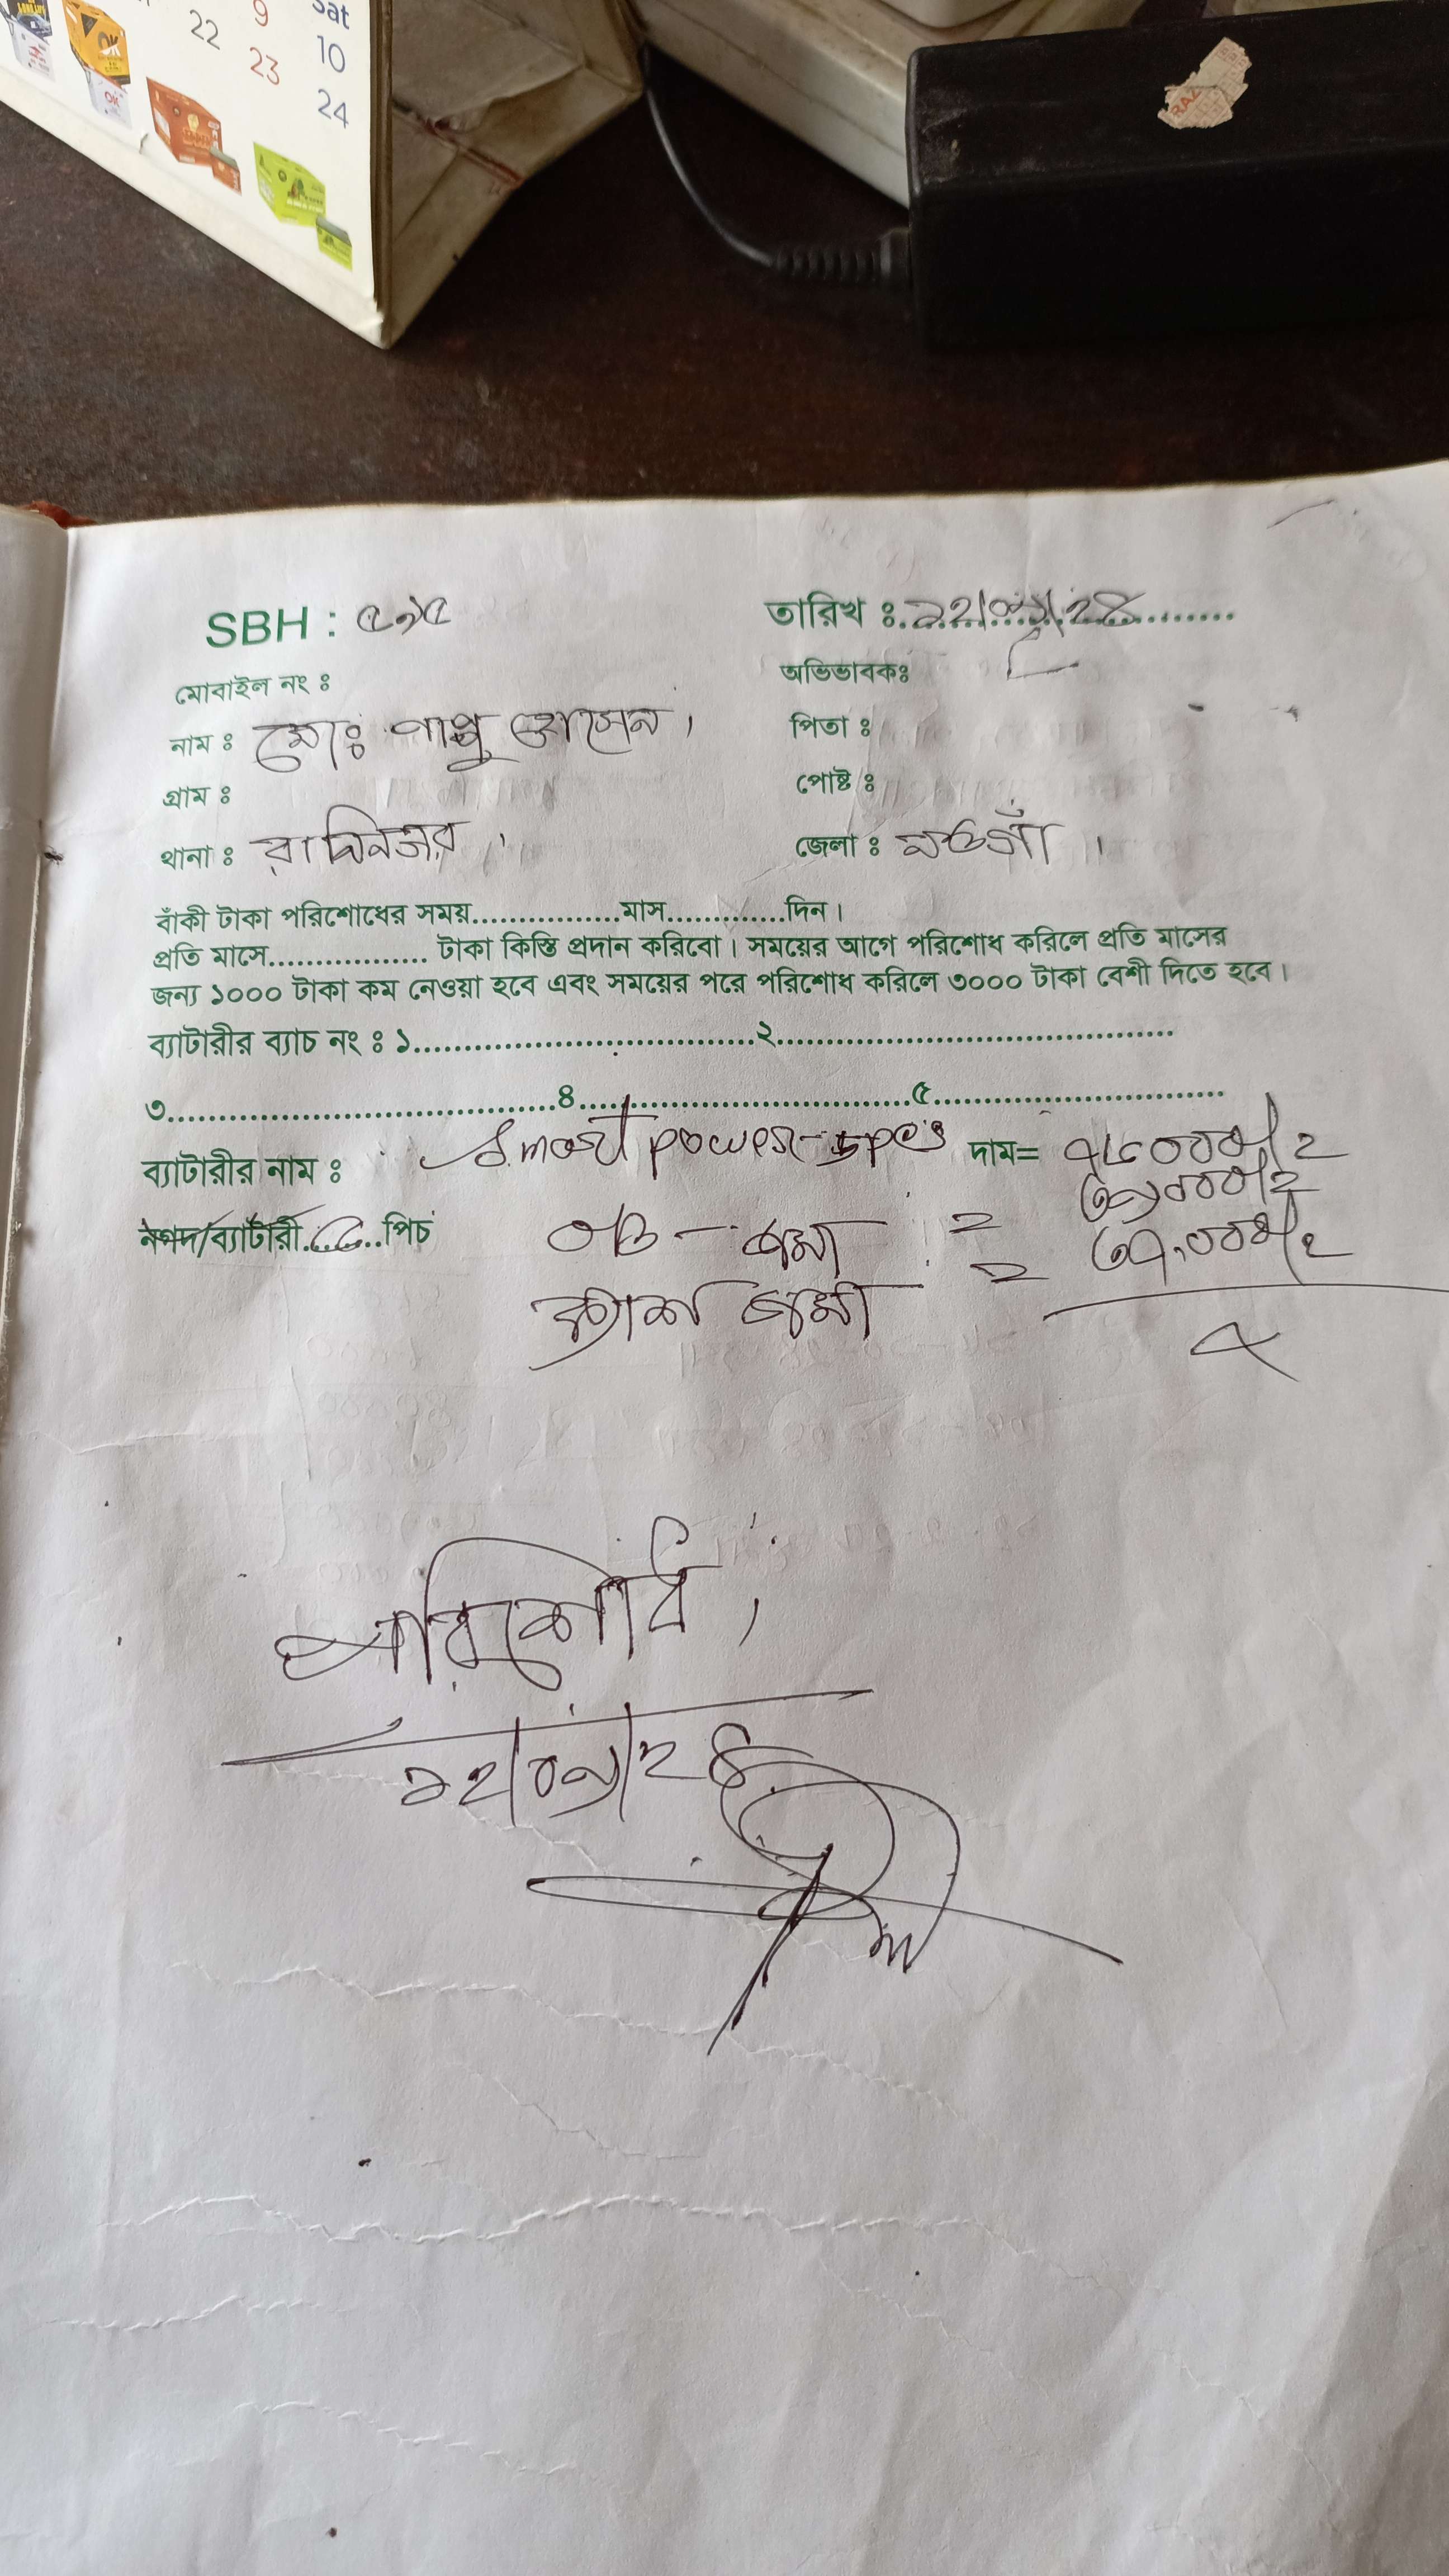 Sat
9 10
22 23 24
OK
RAZ
SBH : ৫৯৫ তারিখ ঃ ১২/০৯/২৪
মোবাইল নং ঃ অভিভাবকঃ
নাম ঃ মোঃ পাপ্পু হোসেন। পিতা ঃ
গ্রাম ঃ পোষ্ট ঃ
থানা ঃ জেলা ঃ নওগাঁ ।
বাঁকী টাকা পরিশোধের সময়................মাস.............দিন।
প্রতি মাসে................. টাকা কিস্তি প্রদান করিবো। সময়ের আগে পরিশোধ করিলে প্রতি মাসের
জন্য ১০০০ টাকা কম নেওয়া হবে এবং সময়ের পরে পরিশোধ করিলে ৩০০০ টাকা বেশী দিতে হবে।
ব্যাটারীর ব্যাচ নং ঃ ১....................................২..........................................
৩.........................................৪...................................৫...............................
ব্যাটারীর নাম ঃ Smart power- 5pcs দাম= ৭৬০০০/=
নগদ/ব্যাটারী..৫..পিচ
জমা = ৩৯০০০/=
ক্যাশ জমা = ৩৭,০০০/=
পরিশোধ,
১২/০৯/২৪